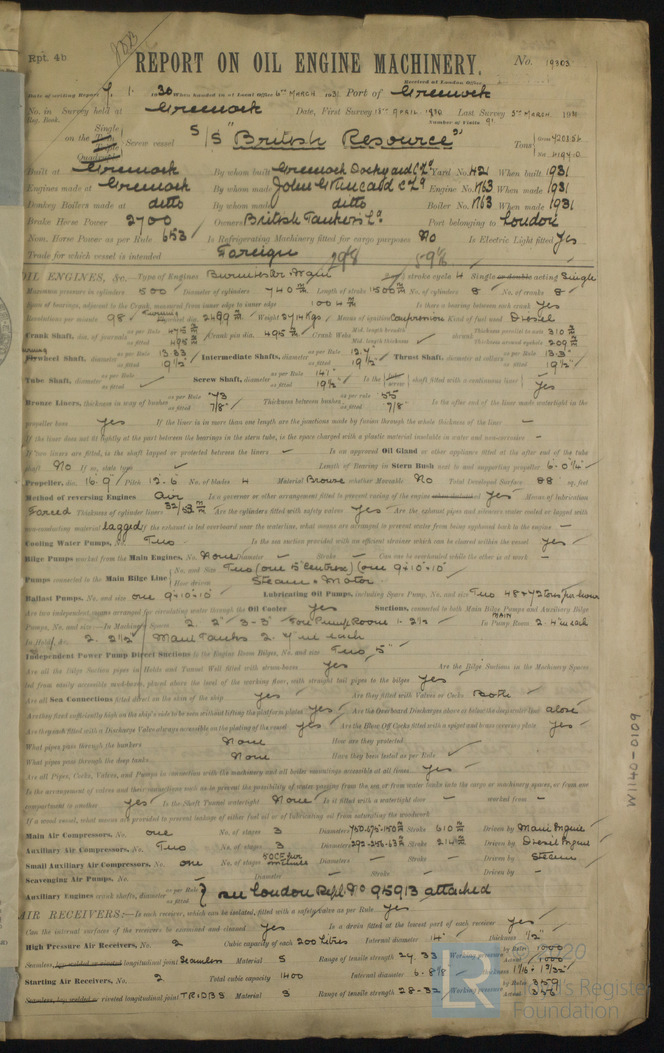 Rpt. 4b
REPORT ON OIL ENGINE MACHINERY.
No. 19303
Received at London Office
Date of writing Report 9. 1. 30 When handed in at Local Office 6th MARCH 1931 Port of Greenock
No. in Survey held at Greenock Date, First Survey 15th APRIL 1930 Last Survey 5th MARCH 1931
Reg. Book. Number of Visits 91
on the Single Triple Quadruple Screw vessel S/S "British Resource" Tons
Built at Greenock By whom built Greenock Dockyard Co Ld Yard No. 421 When built 1931
Engines made at Greenock By whom made John G Kincaid & Co Ld Engine No. K63 When made 1931
Donkey Boilers made at ditto By whom made ditto Boiler No. K63 When made 1931
Brake Horse Power 2700 Owners British Tankers Ld Port belonging to London
Nom. Horse Power as per Rule 653 Is Refrigerating Machinery fitted for cargo purposes No Is Electric Light fitted Yes
Trade for which vessel is intended Foreign
OIL ENGINES, &c. Type of Engines Burmeister Wain stroke cycle 4 Single or double acting Single
Maximum pressure in cylinders 500 Diameter of cylinders 740 m/m Length of stroke 1500 m/m No. of cylinders 8 No. of cranks 8
Span of bearings, adjacent to the Crank, measured from inner edge to inner edge 1004 m/m Is there a bearing between each crank Yes
Revolutions per minute 98 Turning Flywheel dia. 2499 m/m Weight Means of ignition Compression Kind of fuel used Diesel
Crank Shaft, dia. of journals as per Rule 475 m/m as fitted 495 m/m Crank pin dia. 495 m/m Crank Webs Mid. length breadth Mid. length thickness shrunk Thickness parallel to axis 310 m/m Thickness around eyehole 209 m/m
Flywheel Shaft, diameter as per Rule 13.83 as fitted 19½" Intermediate Shafts, diameter as per Rule 12.7 as fitted 19½" Thrust Shaft, diameter at collars as per Rule 13.3" as fitted 19½"
Tube Shaft, diameter as per Rule as fitted Screw Shaft, diameter as per Rule 14.1" as fitted 19½" Is the screw shaft fitted with a continuous liner Yes
Bronze Liners, thickness in way of bushes as per Rule .73 as fitted 7/8" Thickness between bushes as per Rule .55 as fitted 7/8" Is the after end of the liner made watertight in the
propeller boss Yes If the liner is in more than one length are the junctions made by fusion through the whole thickness of the liner -
If the liner does not fit tightly at the part between the bearings in the stern tube, is the space charged with a plastic material insoluble in water and non-corrosive -
If two liners are fitted, is the shaft lapped or protected between the liners - Is an approved Oil Gland or other appliance fitted at the after end of the tube
shaft No If so, state type Length of Bearing in Stern Bush next to and supporting propeller 6-0¼"
Propeller, dia. 16-9" Pitch 12-6" No. of blades 4 Material Bronze whether Moveable No Total Developed Surface 88 sq. feet
Method of reversing Engines Air Is a governor or other arrangement fitted to prevent racing of the engine Yes Means of lubrication
Forced Thickness of cylinder liners Are the cylinders fitted with safety valves Yes Are the exhaust pipes and silencers water cooled or lagged with
non-conducting material lagged If the exhaust is led overboard near the waterline, what means are arranged to prevent water from being syphoned back to the engine -
Cooling Water Pumps, No. Two Is the sea suction provided with an efficient strainer which can be cleared within the vessel Yes
Bilge Pumps worked from the Main Engines, No. None Diameter - Stroke - Can one be overhauled while the other is at work -
Pumps connected to the Main Bilge Line No. and Size Two (one 5" Centrex) (one 9×10×10"
How driven Steam & Motor
Ballast Pumps, No. and size one 9×10×10" Lubricating Oil Pumps, including Spare Pump, No. and size Two 48 & 42 tons per hour
Are two independent means arranged for circulating water through the Oil Cooler Yes Suctions, connected to both Main Bilge Pumps and Auxiliary Bilge
Pumps, No. and size:- In Machinery Spaces 2. 2" 3-3" For Pump Room 1-2½ In MAIN Pump Room 2. 4" in each
In Holds, &c. 2. 2½" Main Tanks 2. 4" in each
Independent Power Pump Direct Suctions to the Engine Room Bilges, No. and size Two, 5"
Are all the Bilge Suction pipes in Holds and Tunnel Well fitted with strum-boxes Yes Are the Bilge Suctions in the Machinery Spaces
led from easily accessible mud-boxes, placed above the level of the working floor, with straight tail pipes to the bilges Yes
Are all Sea Connections fitted direct on the skin of the ship Yes Are they fitted with Valves or Cocks Both
Are they fixed sufficiently high on the ship's side to be seen without lifting the platform plates Yes Are the Overboard Discharges above or below the deep water line above
Are they each fitted with a Discharge Valve always accessible on the plating of the vessel Yes Are the Blow Off Cocks fitted with a spigot and brass covering plate Yes
What pipes pass through the bunkers None How are they protected
What pipes pass through the deep tanks None Have they been tested as per Rule
Are all Pipes, Cocks, Valves, and Pumps in connection with the machinery and all boiler mountings accessible at all times Yes
Is the arrangement of valves and their connections such as to prevent the possibility of water passing from the sea or from water tanks into the cargo or machinery spaces, or from one
compartment to another Yes Is the Shaft Tunnel watertight None Is it fitted with a watertight door - worked from -
If a wood vessel, what means are provided to prevent leakage of either fuel oil or of lubricating oil from saturating the woodwork
Main Air Compressors, No. one No. of stages 3 Diameters 750-675-150 m/m Stroke 610 m/m Driven by Main Engine
Auxiliary Air Compressors, No. Two No. of stages 3 Diameters Stroke Driven by Diesel Engine
Small Auxiliary Air Compressors, No. one No. of stages 50 CF per minute Diameters - Stroke - Driven by Steam
Scavenging Air Pumps, No. - Diameter - Stroke - Driven by -
Auxiliary Engines crank shafts, diameter as per Rule as fitted } see London Rept No 91593 attached
AIR RECEIVERS:- Is each receiver, which can be isolated, fitted with a safety valve as per Rule Yes
Can the internal surfaces of the receivers be examined and cleaned Yes Is a drain fitted at the lowest part of each receiver Yes
High Pressure Air Receivers, No. 2 Cubic capacity of each 200 Litres Internal diameter 14" Thickness ½"
Seamless, lap welded or riveted longitudinal joint Seamless Material S Range of tensile strength Working pressure by Rules 1000 Actual 1000
Starting Air Receivers, No. 2 Total cubic capacity 1400 Internal diameter 6-8⅝ Thickness
Seamless, lap welded or riveted longitudinal joint TR.D.B.S Material S Range of tensile strength 28-32 Working pressure by Rules 359 Actual 356
W1140-0109
© 2020
Lloyd's Register
Foundation